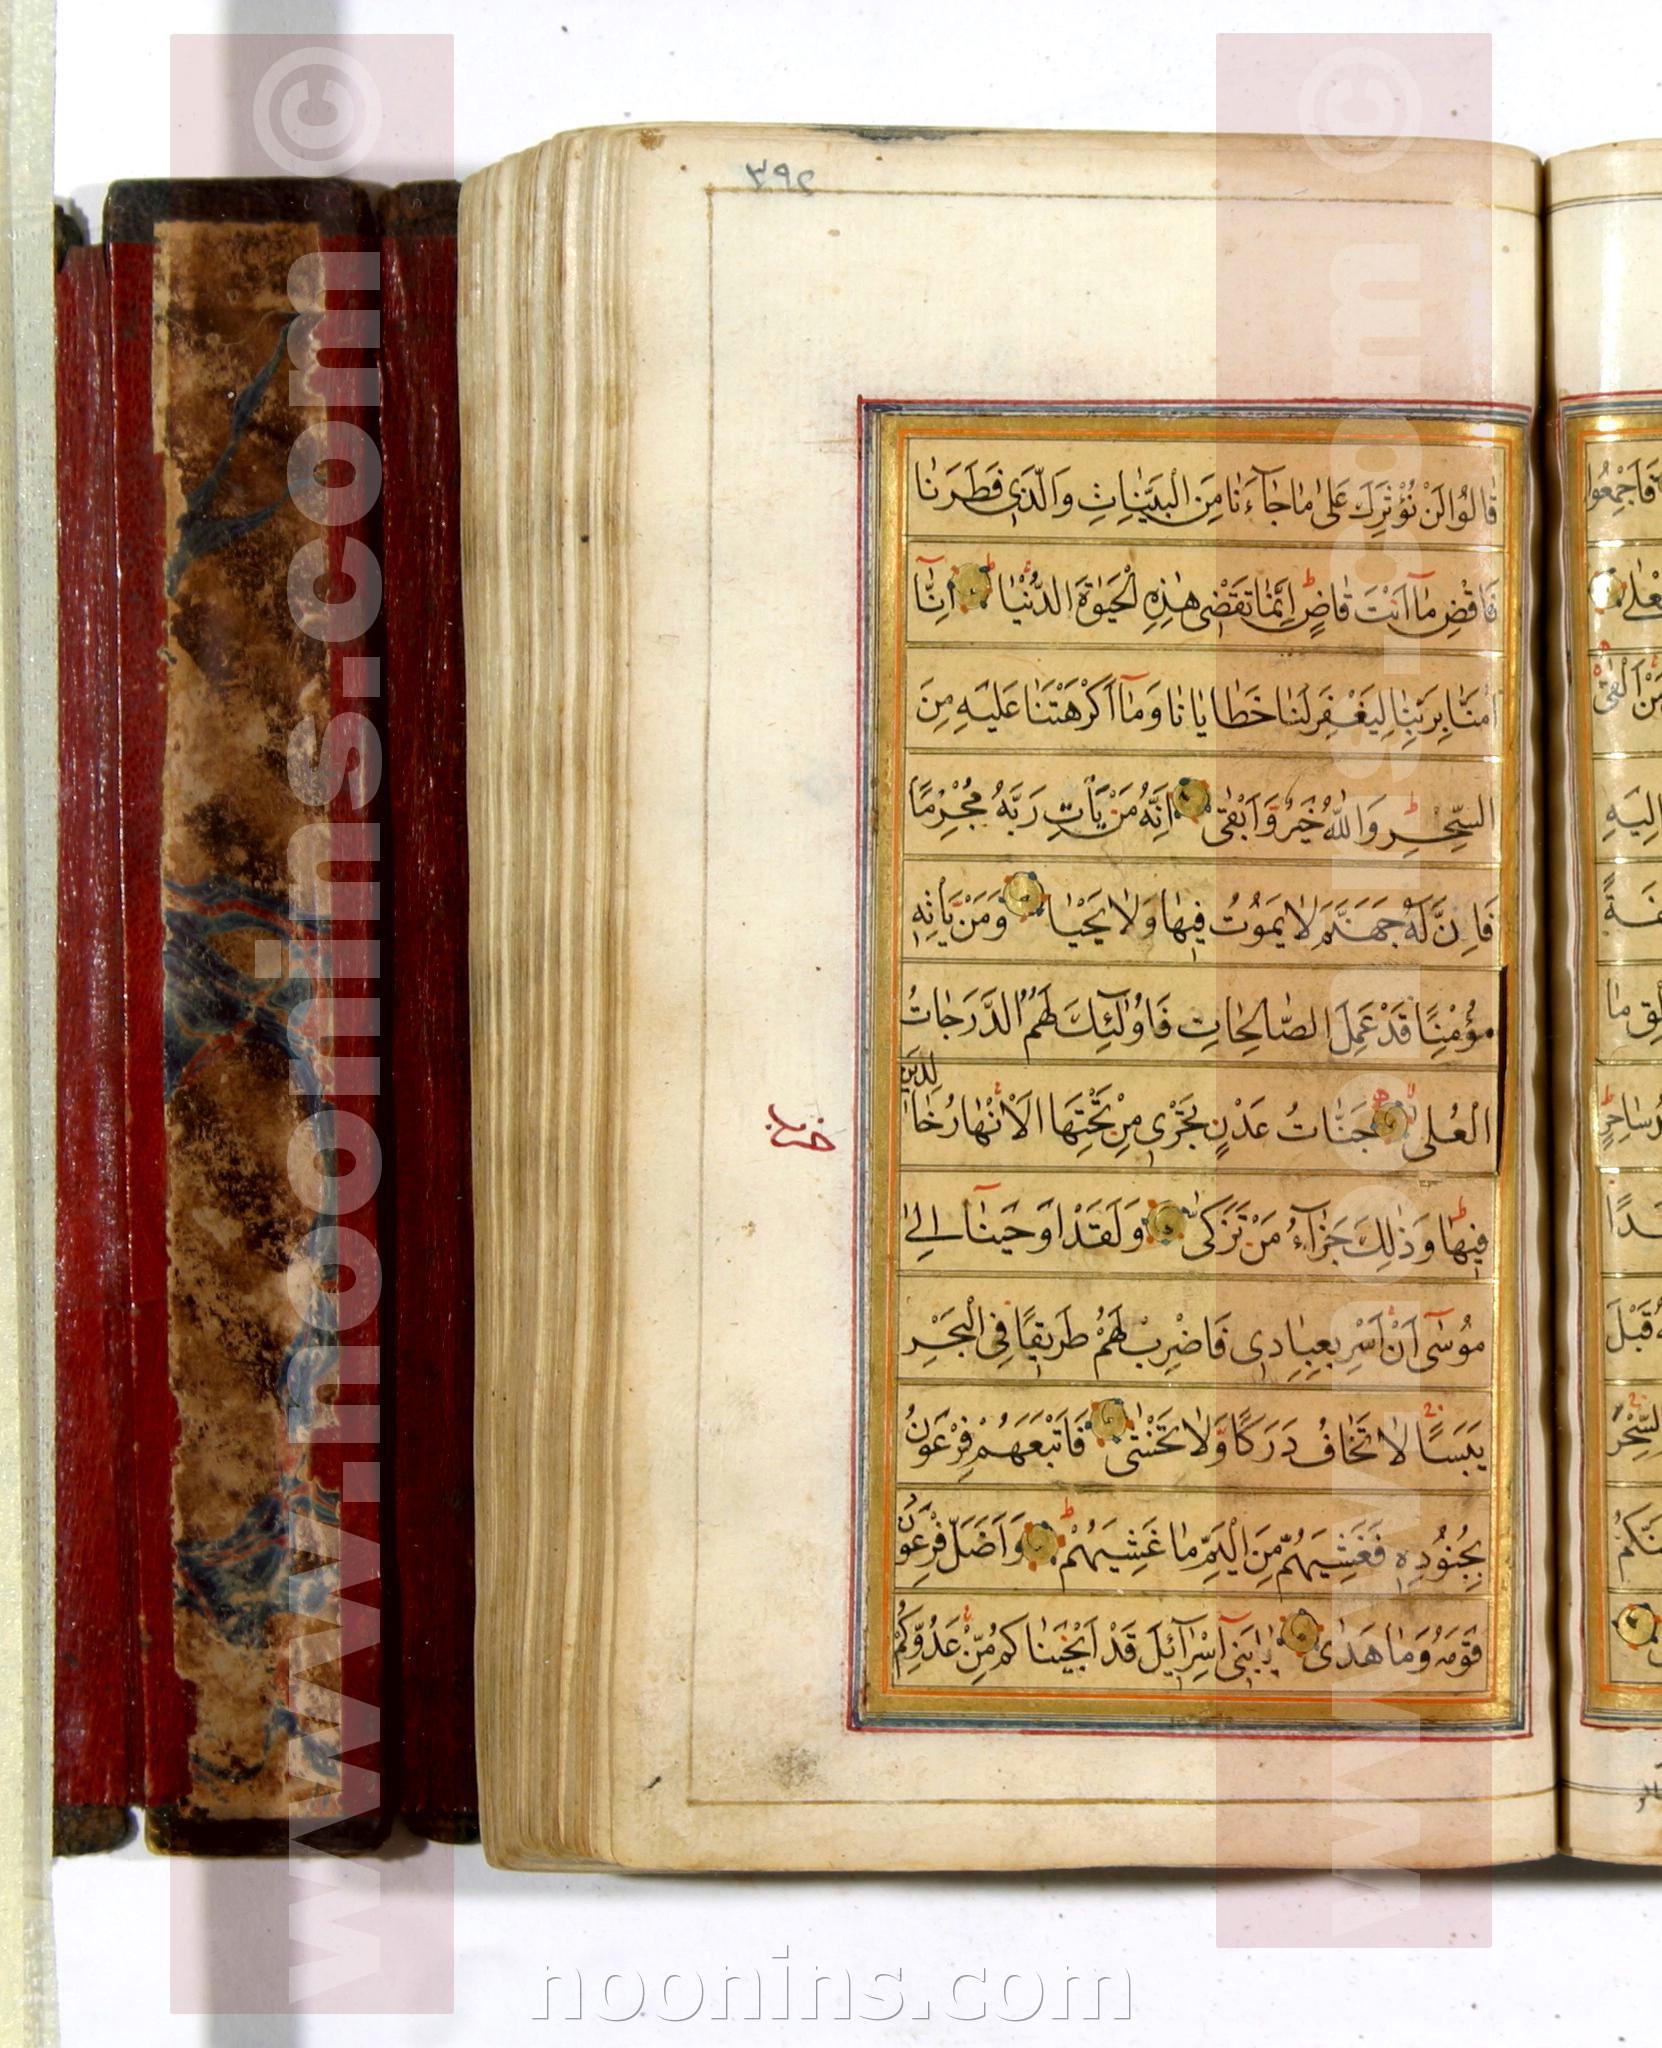 ۳۹۲
قَالُوا لَنْ نُؤْثِرَكَ عَلىٰ مٰا جٰآءَنٰا مِنَ الْبَيِّنٰاتِ وَالَّذي فَطَرَنٰا
فَاقْضِ مٰآ اَنْتَ قٰاضٍ اِنَّمٰا تَقْضي هٰذِهِ الْحَيٰوةَ الدُّنْيٰا اِنّٰآ
اٰمَنّٰا بِرَبِّنٰا لِيَغْفِرَ لَنٰا خَطٰايٰانٰا وَمٰآ اَكْرَهْتَنٰا عَلَيْهِ مِنَ
السِّحْرِ وَاللّٰهُ خَيْرٌ وَاَبْقىٰ اِنَّهُ مَنْ يَأْتِ رَبَّهُ مُجْرِمًا
فَاِنَّ لَهُ جَهَنَّمَ لٰا يَمُوتُ فيهٰا وَلٰا يَحْيٰا وَمَنْ يَأْتِهِ
مُؤْمِنًا قَدْ عَمِلَ الصّٰالِحٰاتِ فَاُولٰٓئِكَ لَهُمُ الدَّرَجٰاتُ
الْعُلىٰ جَنّٰاتُ عَدْنٍ تَجْري مِنْ تَحْتِهَا الْاَنْهٰارُ خٰالِدينَ
حزب
فيهٰا وَذٰلِكَ جَزٰآءُ مَنْ تَزَكّىٰ وَلَقَدْ اَوْحَيْنٰا اِلىٰ
مُوسىٰٓ اَنْ اَسْرِ بِعِبٰادي فَاضْرِبْ لَهُمْ طَريقًا فِي الْبَحْرِ
يَبَسًا لٰا تَخٰافُ دَرَكًا وَلٰا تَخْشىٰ فَاَتْبَعَهُمْ فِرْعَوْنُ
بِجُنُودِهِ فَغَشِيَهُمْ مِنَ الْيَمِّ مٰا غَشِيَهُمْ وَاَضَلَّ فِرْعَوْنُ
قَوْمَهُ وَمٰا هَدٰى يٰا بَنيٓ اِسْرٰآئيلَ قَدْ اَنْجَيْنٰاكُمْ مِنْ عَدُوِّكُمْ
www.noonins.com ©
www.noonins.com ©
noonins.com